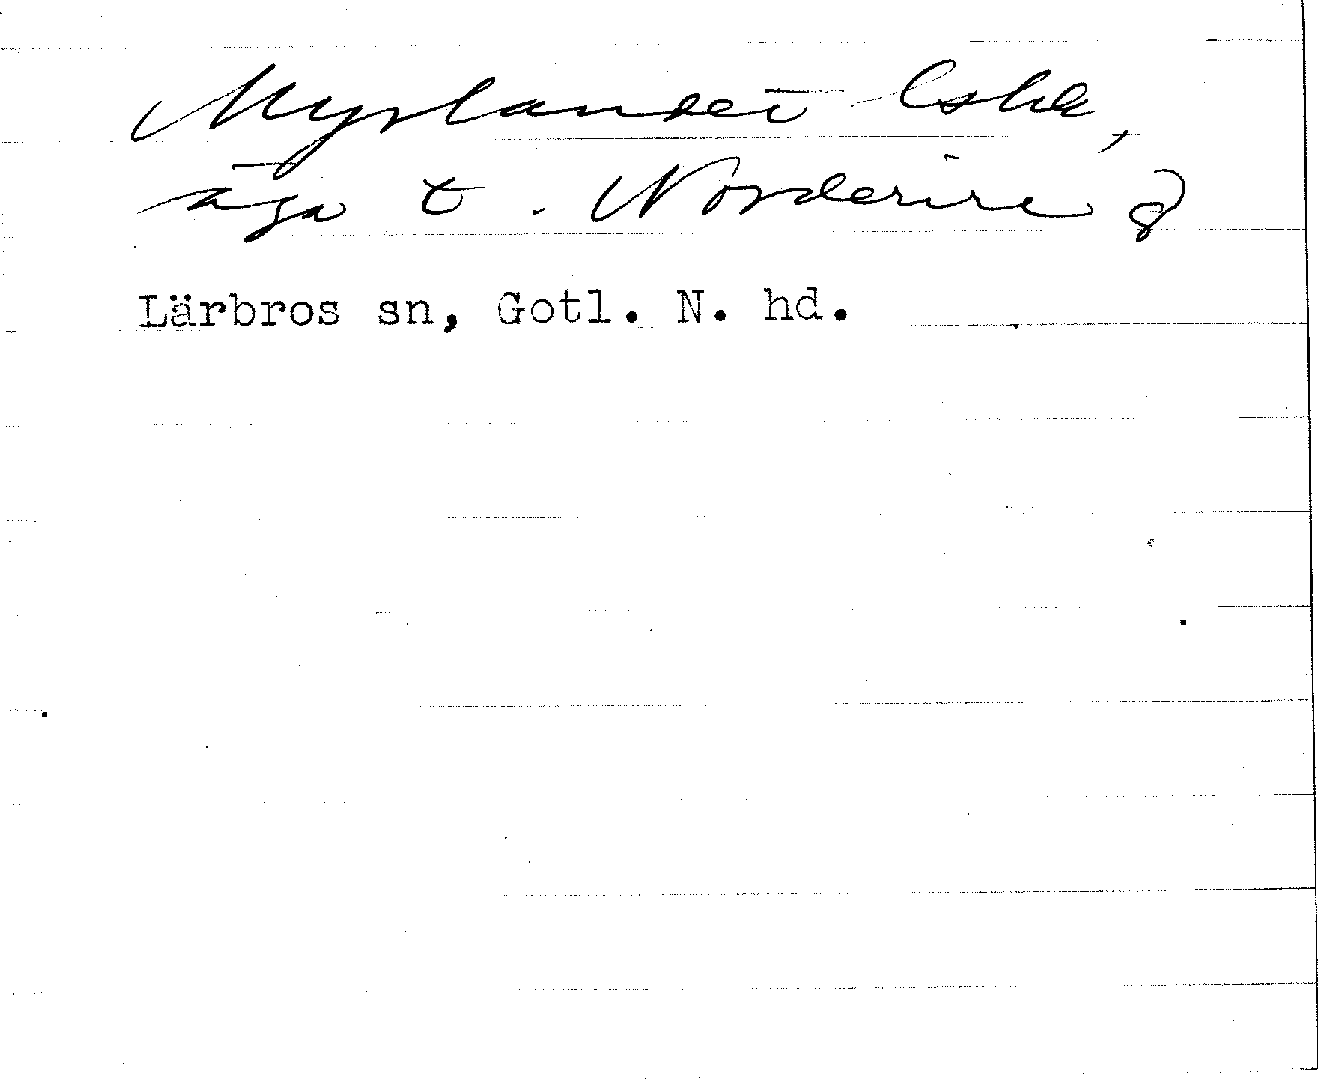 Myrlandet Eskl,
äga t. Norderire 8
Lärbros sn, Gotl. N. hd.